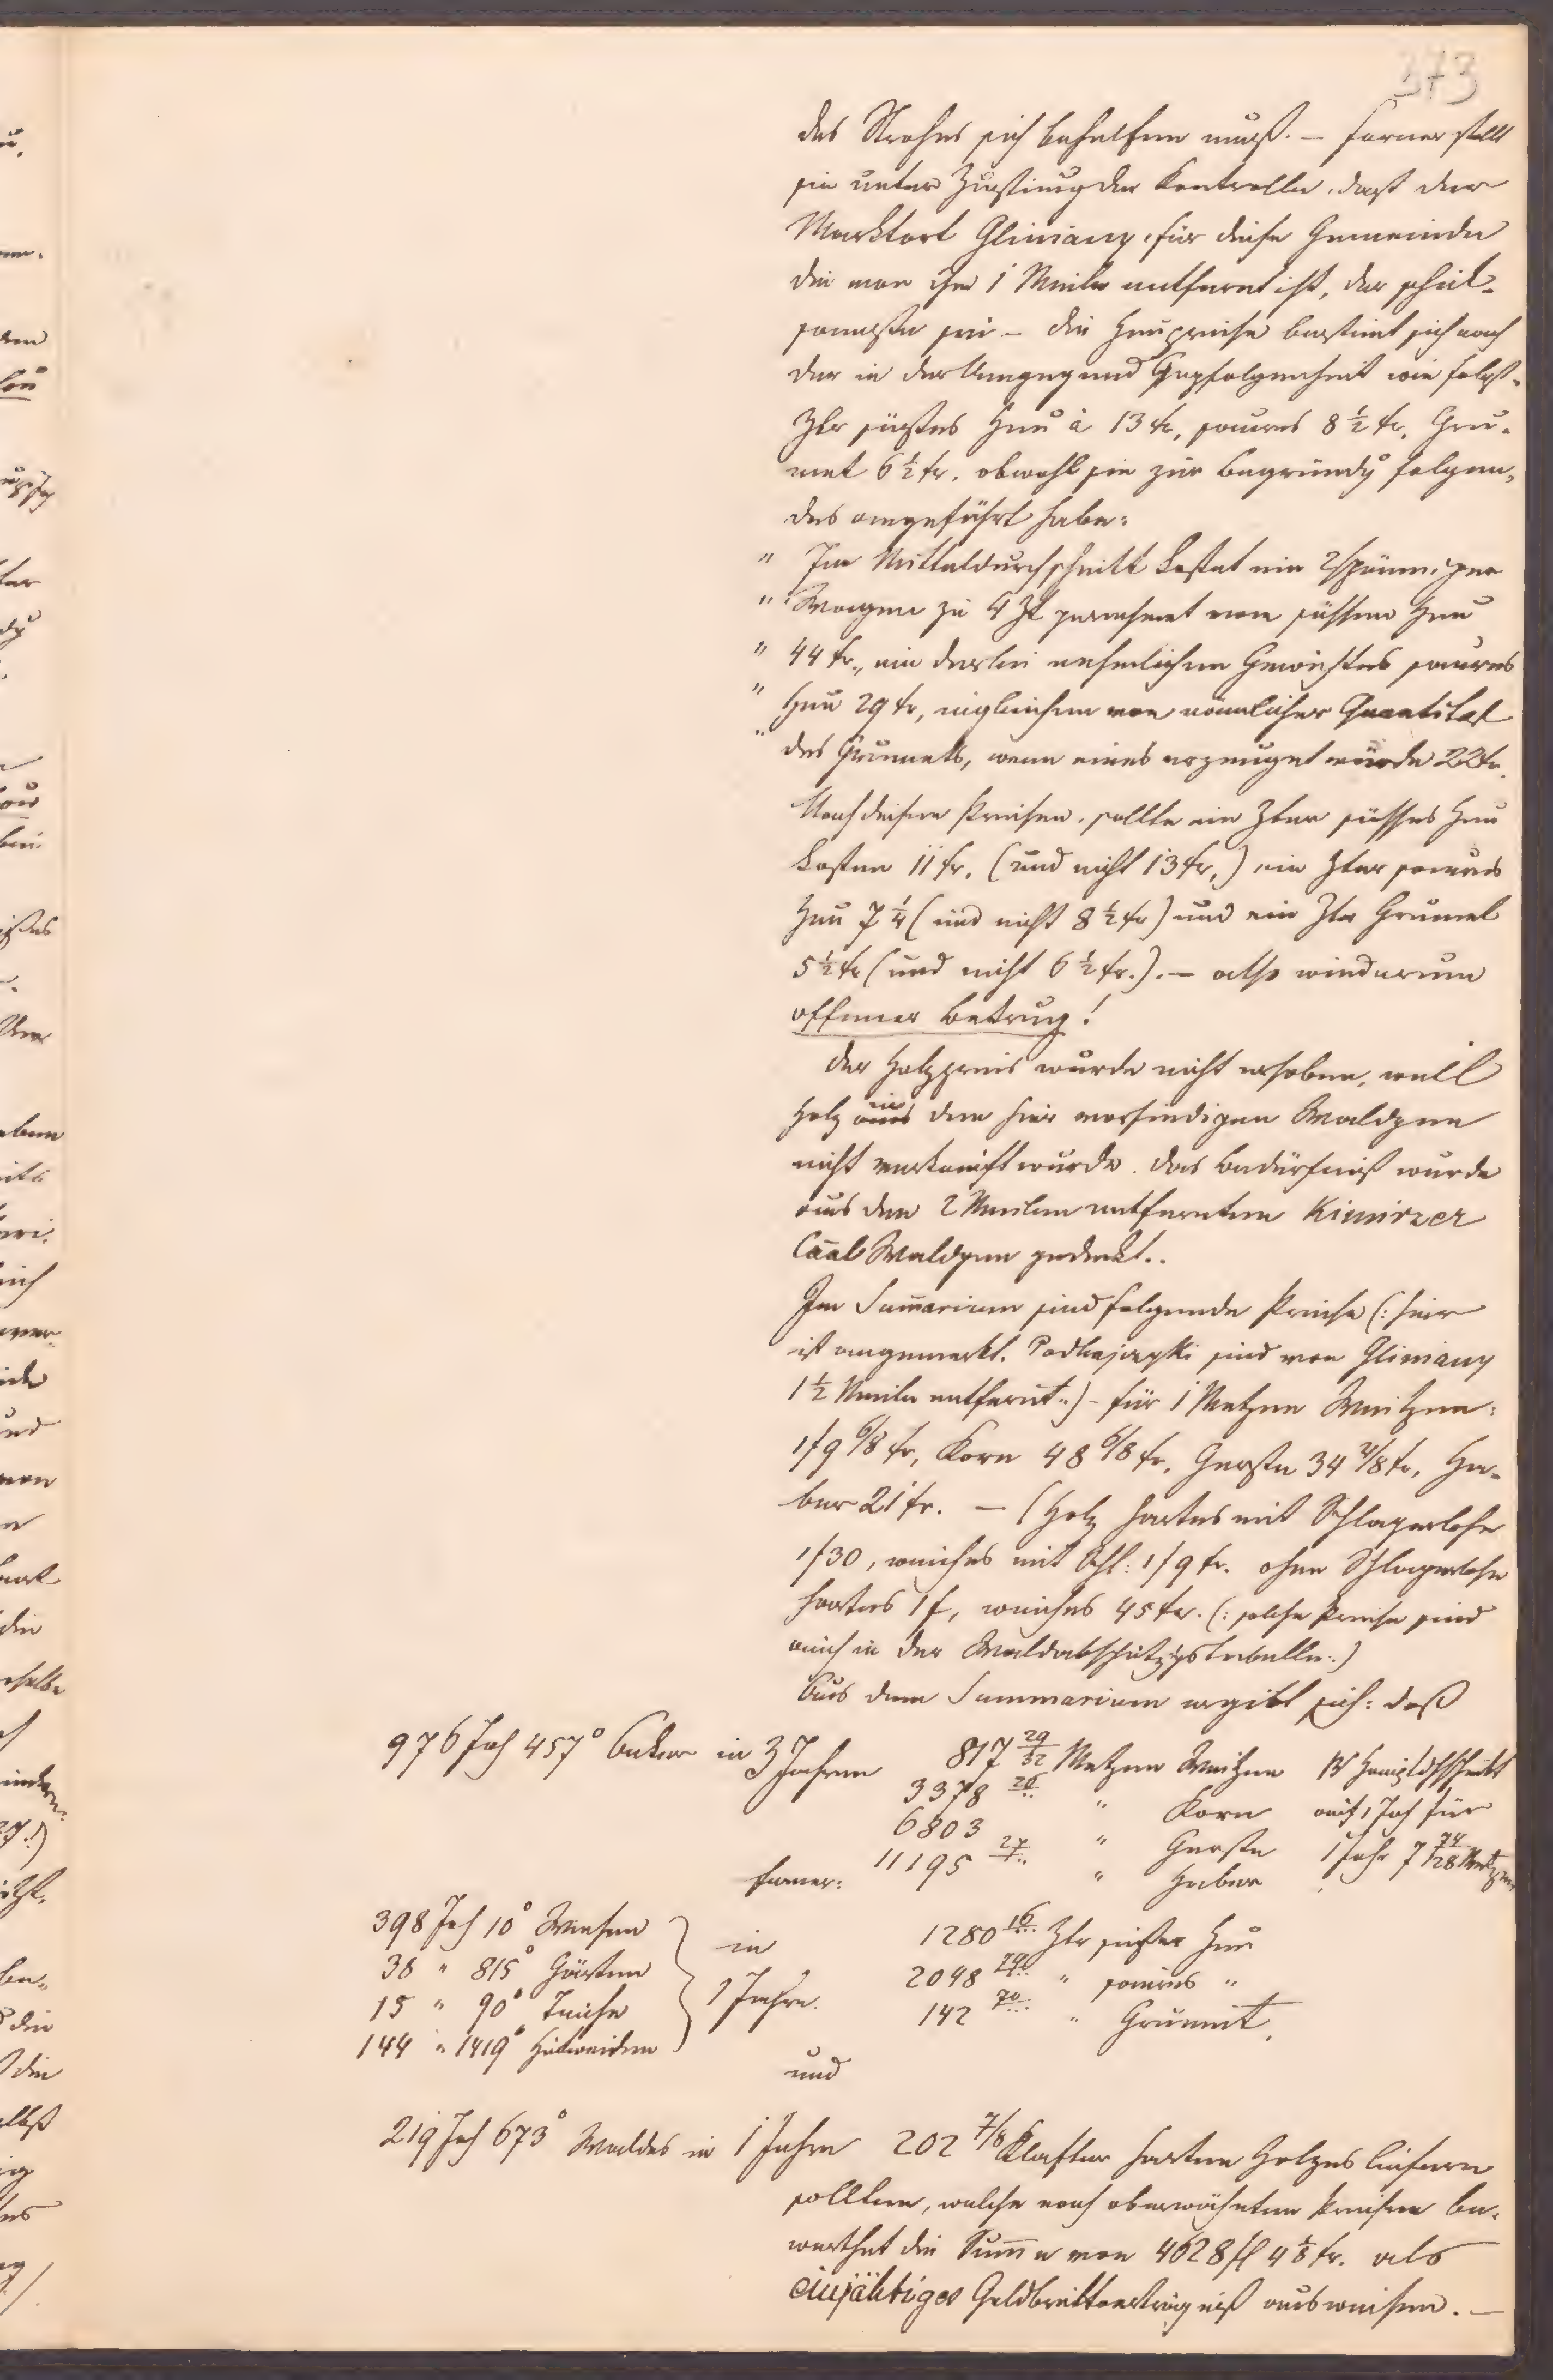 373
des Strohes sich behelfen muß. — Ferner stellt
sie unter Zustimung der Kontrolle, daß der
Marktort Gliniany, für diese Gemeinde
die von ihm 1 Meile entfernt ist, der
sei — die Heupreise bestimt sich nach
der in der Umgegend Gepflogenheit wie folgt.
Ztr süßes Heu à 13 kr, saures 8 ½ kr. Gru-
met 6 ½ kr. obwohl sie zur Begründg folgen-
des angeführt habe:
" Im Mitteldurchschnitt kostet ein 2spänniger
" Wagen zu 4 Zt gerechnet von süssem Heu
" 44 kr., ein derlei nehmlichen Gewichtes saures
" Heu 29 kr, von nämlicher Quantität
" des Grumets, wenn eines erzeuget würde 22 kr.
Nach diesen Preisen, sollte ein Ztner süsses Heu
kosten 11 kr. (und nicht 13 kr,) ein Ztner saures
Heu 7 ¼ (und nicht 8 ½ kr) und ein Ztr Grumet
5 ½ kr (und nicht 6 ½ kr.). — also wiederum
offener Betrug!
Der Holzpreis wurde nicht erhoben, weil
Holz aus den hier vorfindigen Waldgen
nicht verkauft wurde. Das Bedürfniß wurde
aus den 2 Meilen entfernten Kimirzer
Caal Waldgen gedeckt..
Im Sumarium sind folgende Preise (: hier
ist angemerkt. Podhajczyki sind von Gliniany
1 ½ Meile entfernt :) – für 1 Metzen Weitzen:
1f9 6/8 kr, Korn 48 6/8 kr, Gerste 34 2/8 kr, Ha-
ber 21 kr. — (Holz hartes mit Schlagerlohn
1f30, weiches mit Schl: 1f9 kr. ohne Schlagerlohn
hartes 1f, weiches 45 kr. (: solche Preise sind
auch in der Waldabschätzgstabelle :)
Aus dem Summarium ergibt sich: daß
976 Joh 457° Aecker in 3 Jahren 817 29/32 Metzen Weitzen
3378 26 " Korn auf 1 Joh für
6803 " Gerste 1 Jahr 7 74/128 Metzen
ferner: 11195 27 " Haber
398 Joh 10° Wiesen in 1280 16 Ztr süsses Heu
38 " 815° Gärten 2048 " saures "
15 " 90° Teiche 1 Jahre. 142 70 " Grumit,
144 " 1419° Hutweiden
und
219 Joh 673° Waldes in 1 Jahre 202 7/8 Klafter harten Holzes liefern
sollten, welche nach oberwähnten Preisen be-
werthet die Summe von 4628 fl 4 ⅛ kr. als
einjähriges Geldbruttoerträgniß ausweisen. —